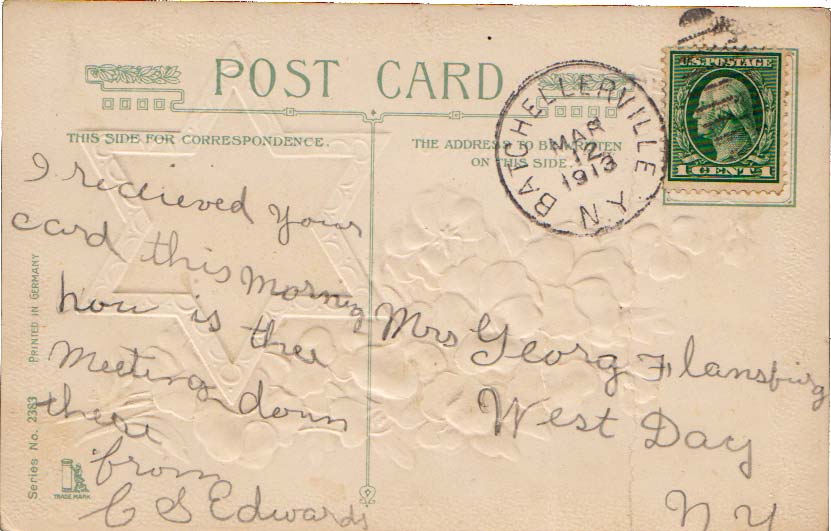 POST CARD
THIS SIDE FOR CORRESPONDENCE.
THE ADDRESS TO BE WRITTEN
ON THIS SIDE.
BATCHELLERVILLE N.Y.
MAR
12
1913
U.S. POSTAGE
1 CENT 1
I recieved your
card this morning
how is thee
Meeting down
there
from
C S Edwards
Mrs Georg Flansburg
West Day
NY
Series No. 2383 PRINTED IN GERMANY
TRADE MARK